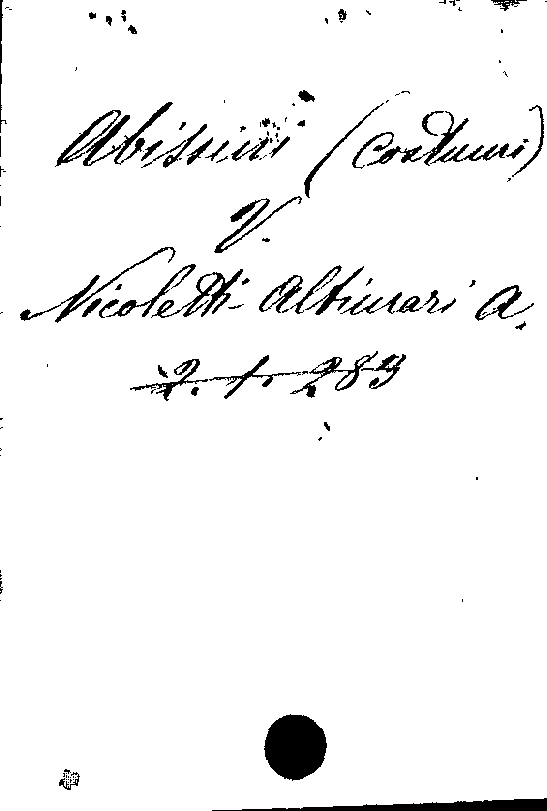 Abissini (costumi)
V.
Nicoletti-Altimari A.
2. 1. 283